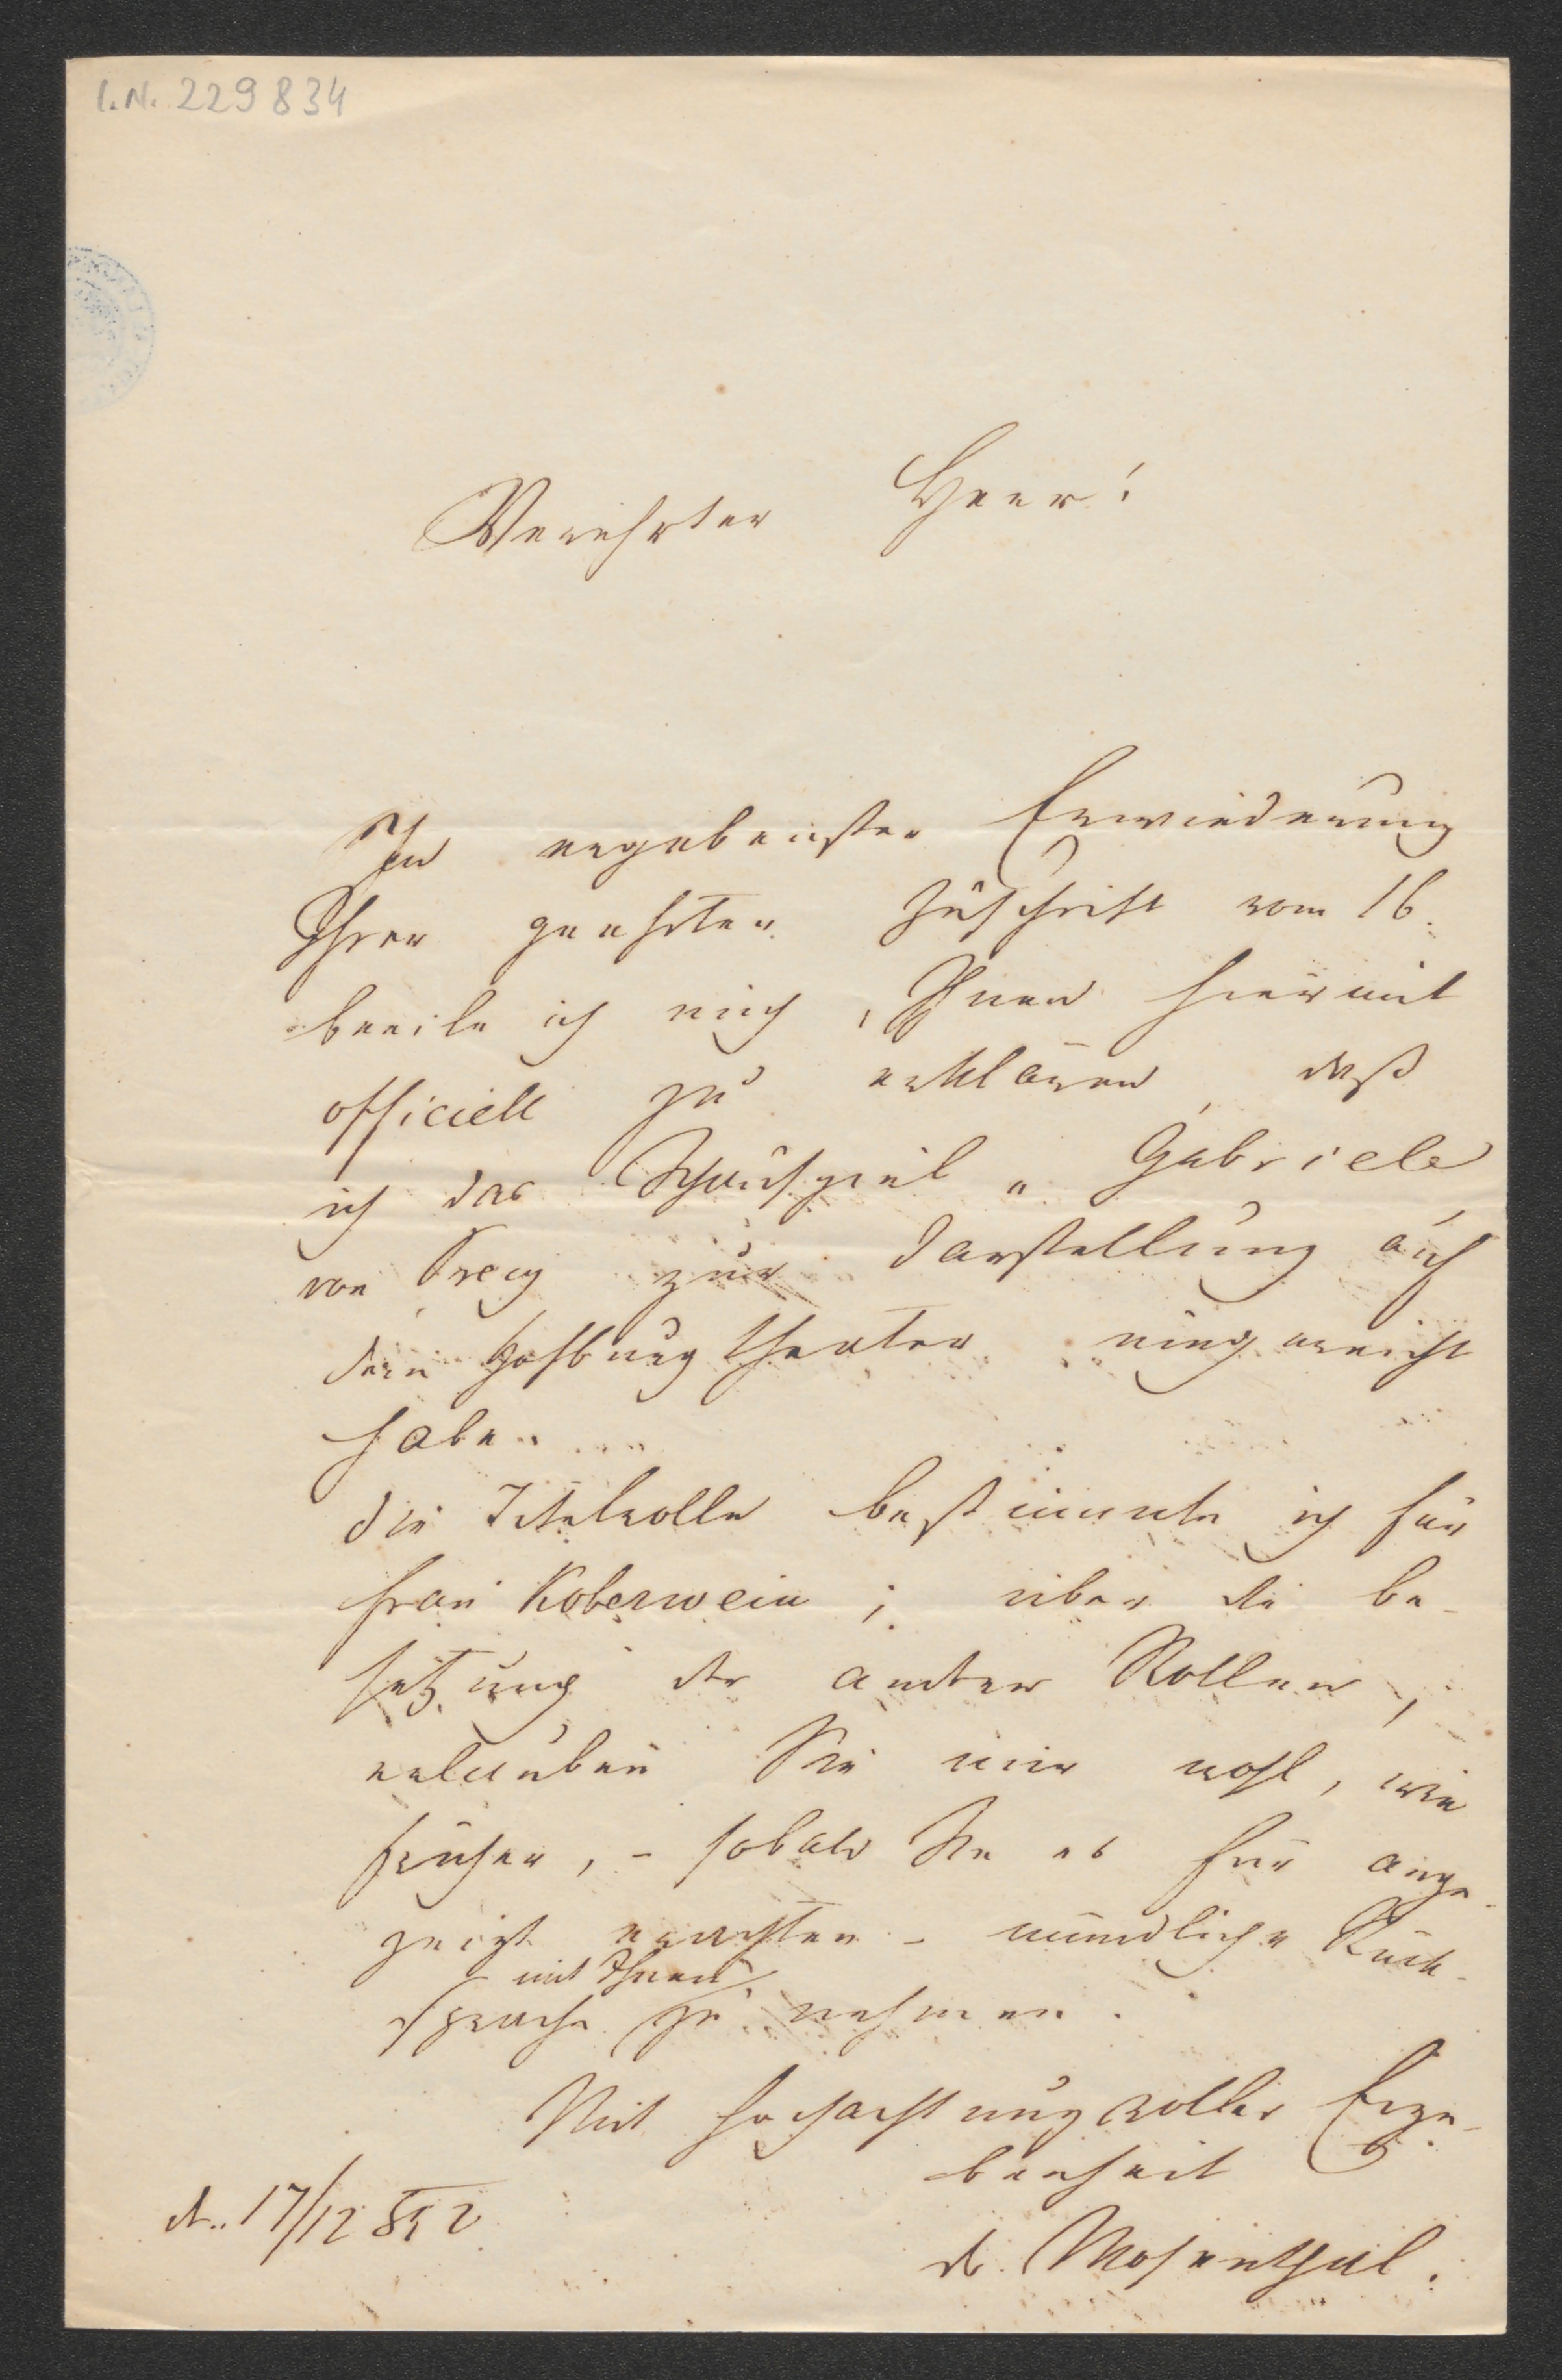 I.N. 229834
Verehrter Herr!
In ergebenster Erwiederung
Ihrer geehrten Zuschrift vom 16.
beeile ich mich, Ihnen hiermit
officiell zu erklären, daß
ich das Schauspiel „Gabriele
von Precy zur Darstellung auf
dem Hofburgtheater eingereicht
habe.
Die Titelrolle bestimmte ich für
Frau Koberwein; über die Be-
setzung der andern Rollen,
erlauben Sie mir wohl, wie
früher, - sobald Sie es für ange-
zeigt erachten - mündliche Rück-
mit Ihnen
sprache zu nehmen.
Mit hochachtungsvoller Erge-
benheit
d. 17/12 852
Dr. Mosenthal.